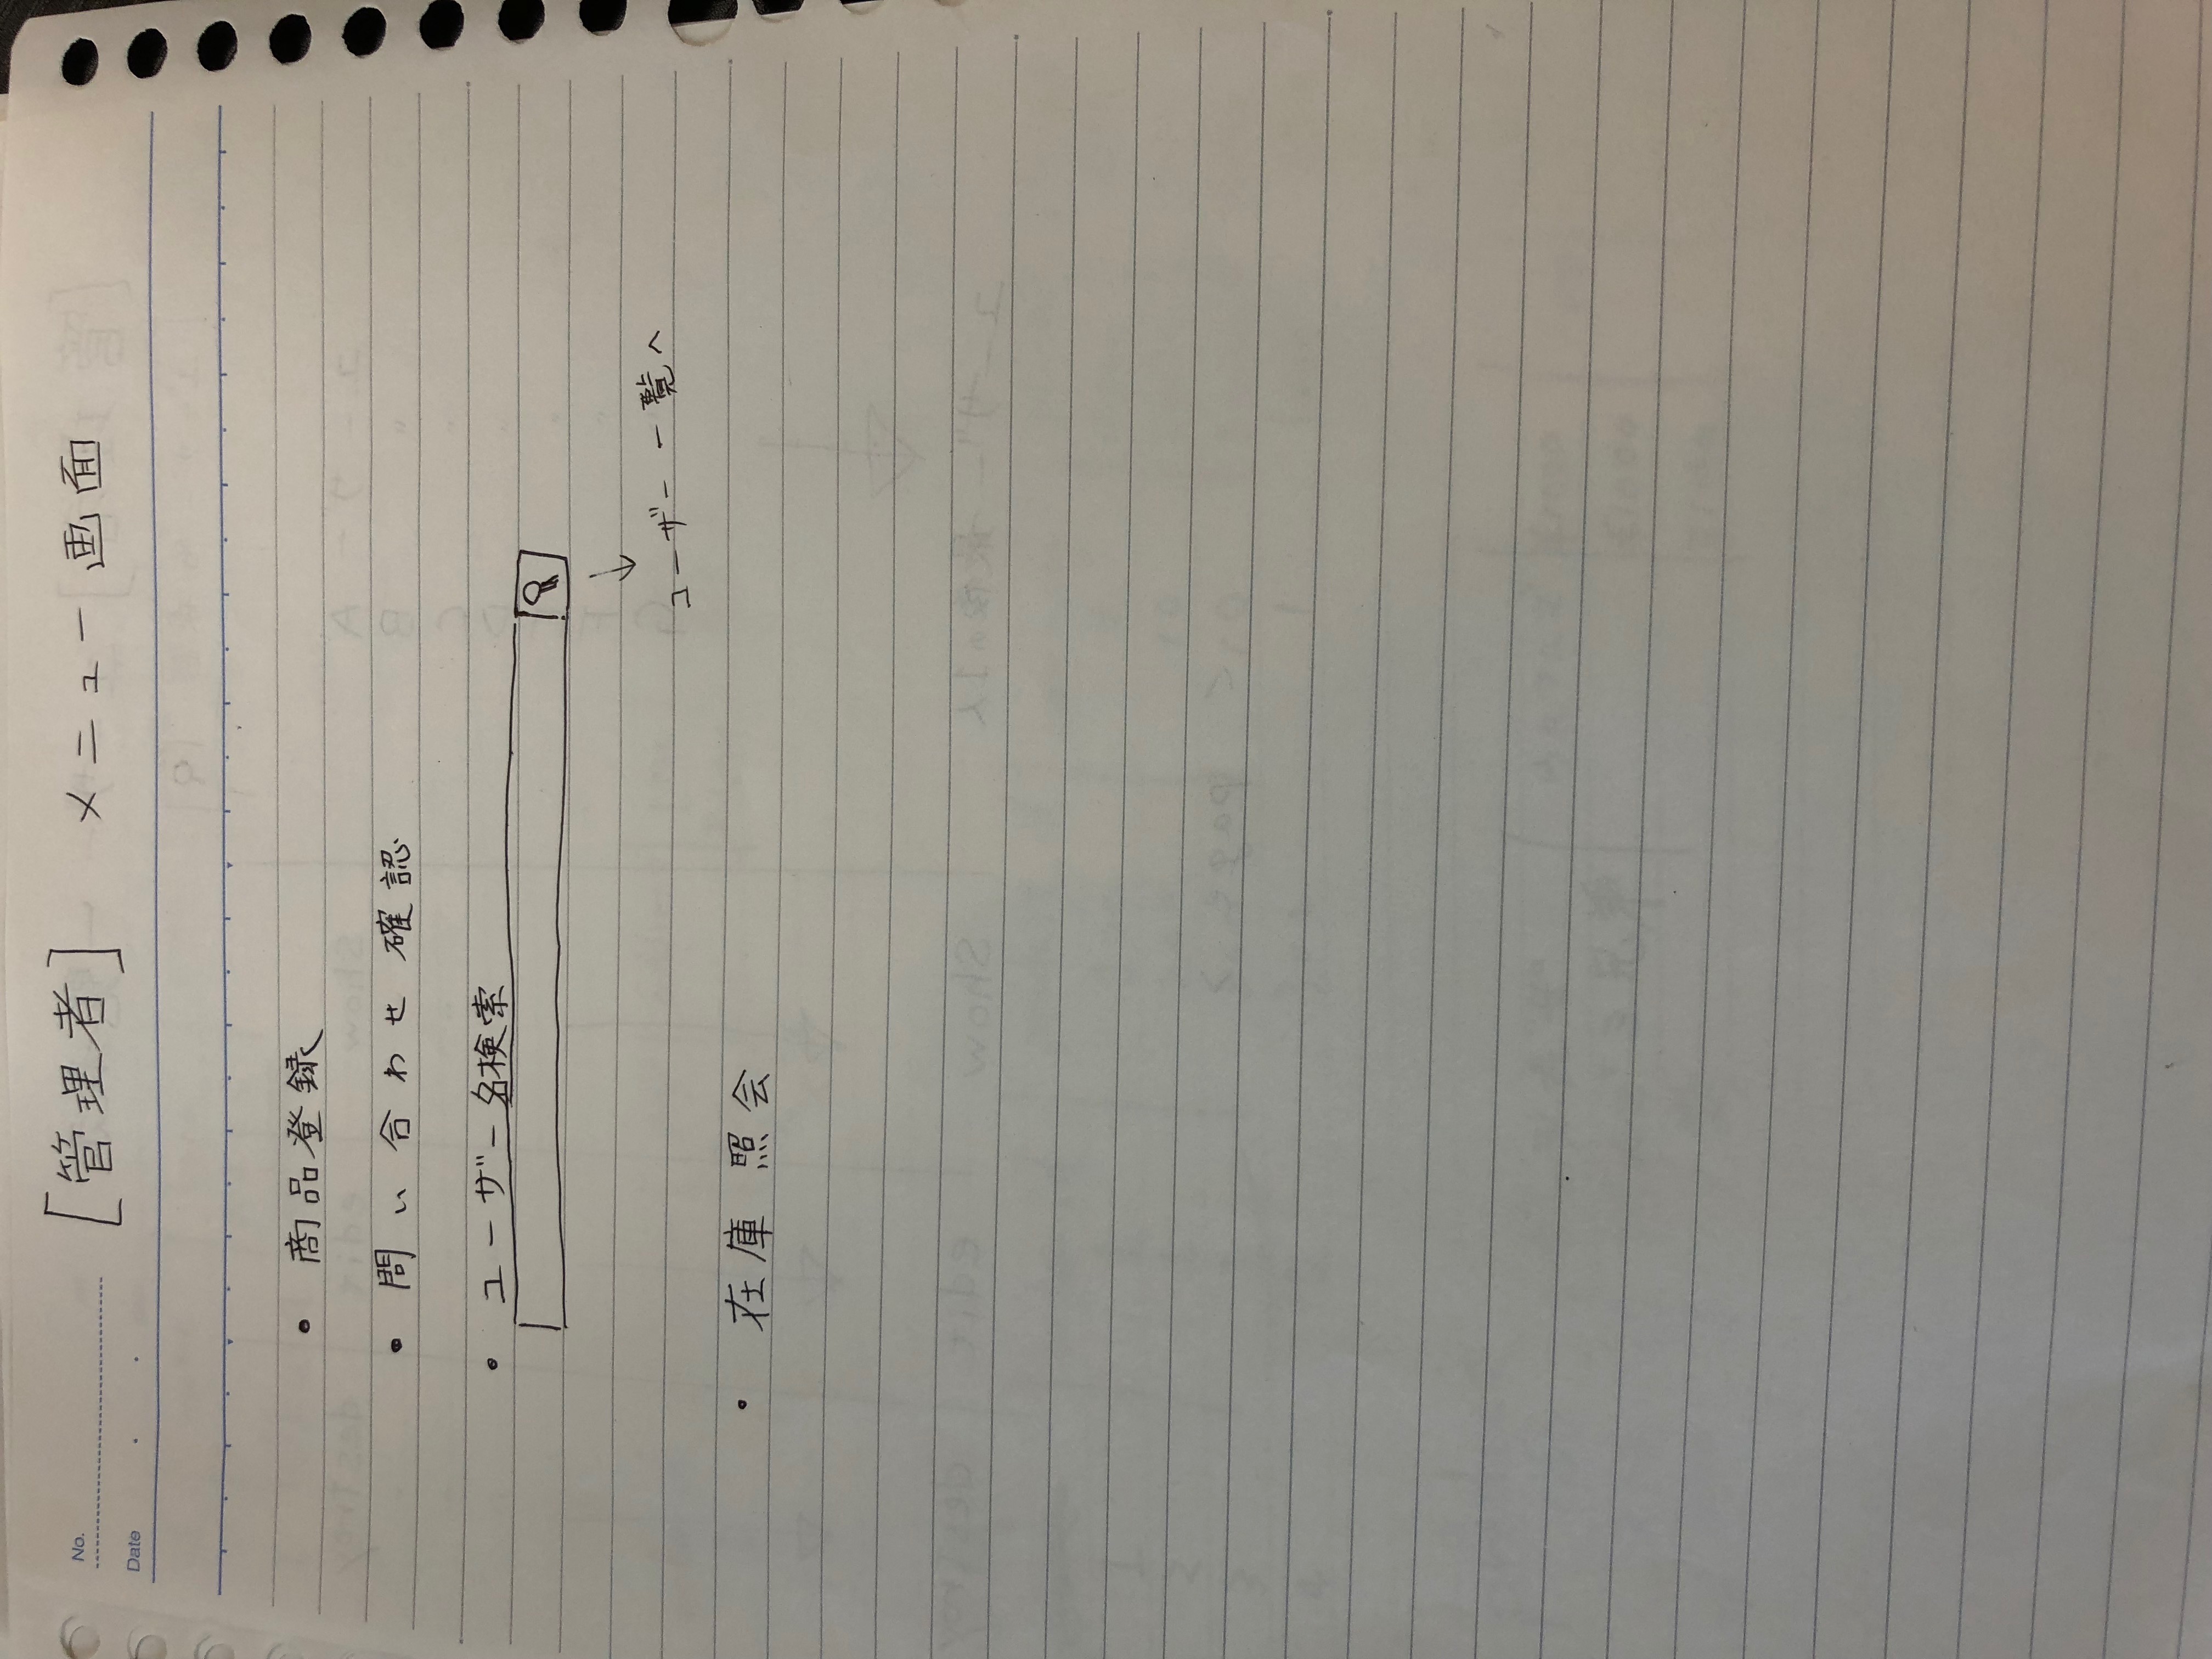 No.
[管理者] メニュー画面
Date
・ 商品登録
・ 問い合わせ確認
・ ユーザー名検索
ユーザー一覧へ
・ 在庫照会